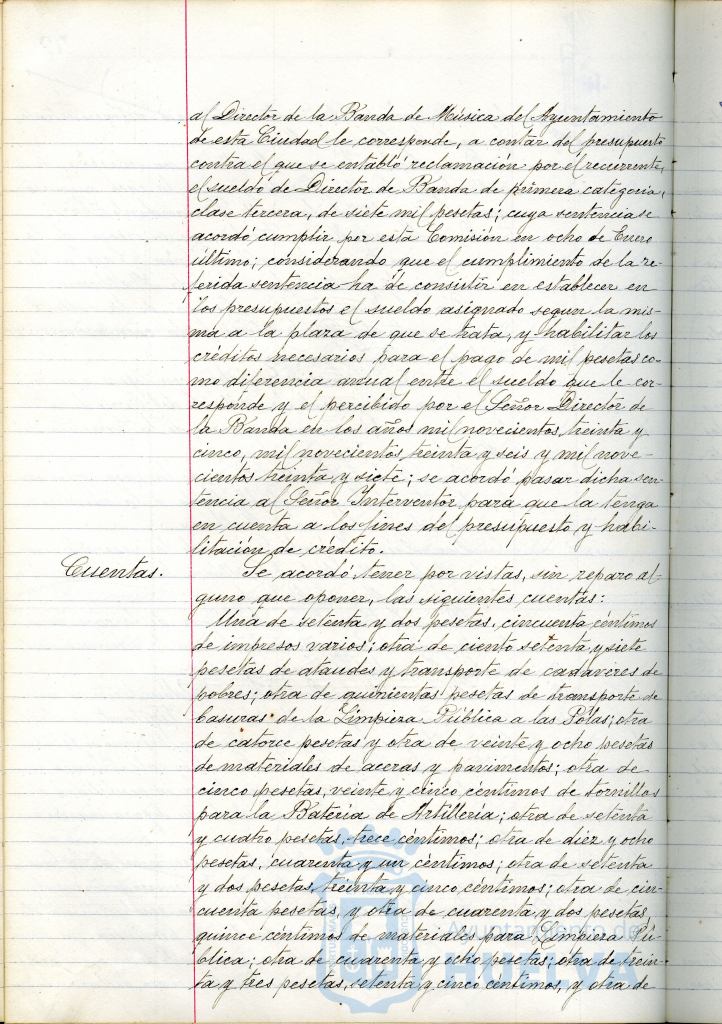 al Director de la Banda de Música del Ayuntamiento
de esta Ciudad le corresponde, a contar del presupuesto
contra el que se entabló reclamación por el recurrente,
el sueldo de Director de Banda de primera categoria,
clase tercera, de siete mil pesetas; cuya sentencia se
acordó cumplir por esta Comisión en ocho de Enero
último; considerando que el cumplimiento de la re-
ferida sentencia ha de consistir en establecer en
los presupuestos el sueldo asignado segun la mis-
ma a la plaza de que se trata, y habilitar los
créditos necesarios para el pago de mil pesetas co-
mo diferencia anual entre el sueldo que le cor-
responde y el percibido por el Señor Director de
la Banda en los años mil novecientos treinta y
cinco, mil novecientos treinta y seis y mil nove-
cientos treinta y siete; se acordó pasar dicha sen-
tencia al Señor Interventor para que la tenga
en cuenta a los fines del presupuesto y habi-
litación de crédito.
Cuentas. Se acordó tener por vistas, sin reparo al-
guno que oponer, las siguientes cuentas:
Una de setenta y dos pesetas, cincuenta céntimos
de impresos varios; otra de ciento setenta y siete
pesetas de ataudes y transporte de cadaveres de
pobres; otra de quinientas pesetas de transporte de
basuras de la Limpieza Pública a las Polas; otra
de catorce pesetas y otra de veinte y ocho pesetas
de materiales de aceras y pavimentos; otra de
cinco pesetas, veinte y cinco céntimos de tornillos
para la Bateria de Artilleria; otra de setenta
y cuatro pesetas, trece céntimos; otra de diez y ocho
pesetas, cuarenta y un céntimos; otra de setenta
y dos pesetas, treinta y cinco céntimos; otra de cin-
cuenta pesetas, y otra de cuarenta y dos pesetas,
quince céntimos de materiales para Limpieza Pú-
blica; otra de cuarenta y ocho pesetas; otra de trein-
ta y tres pesetas, setenta y cinco céntimos, y otra de
Ayuntamiento de
HUELVA